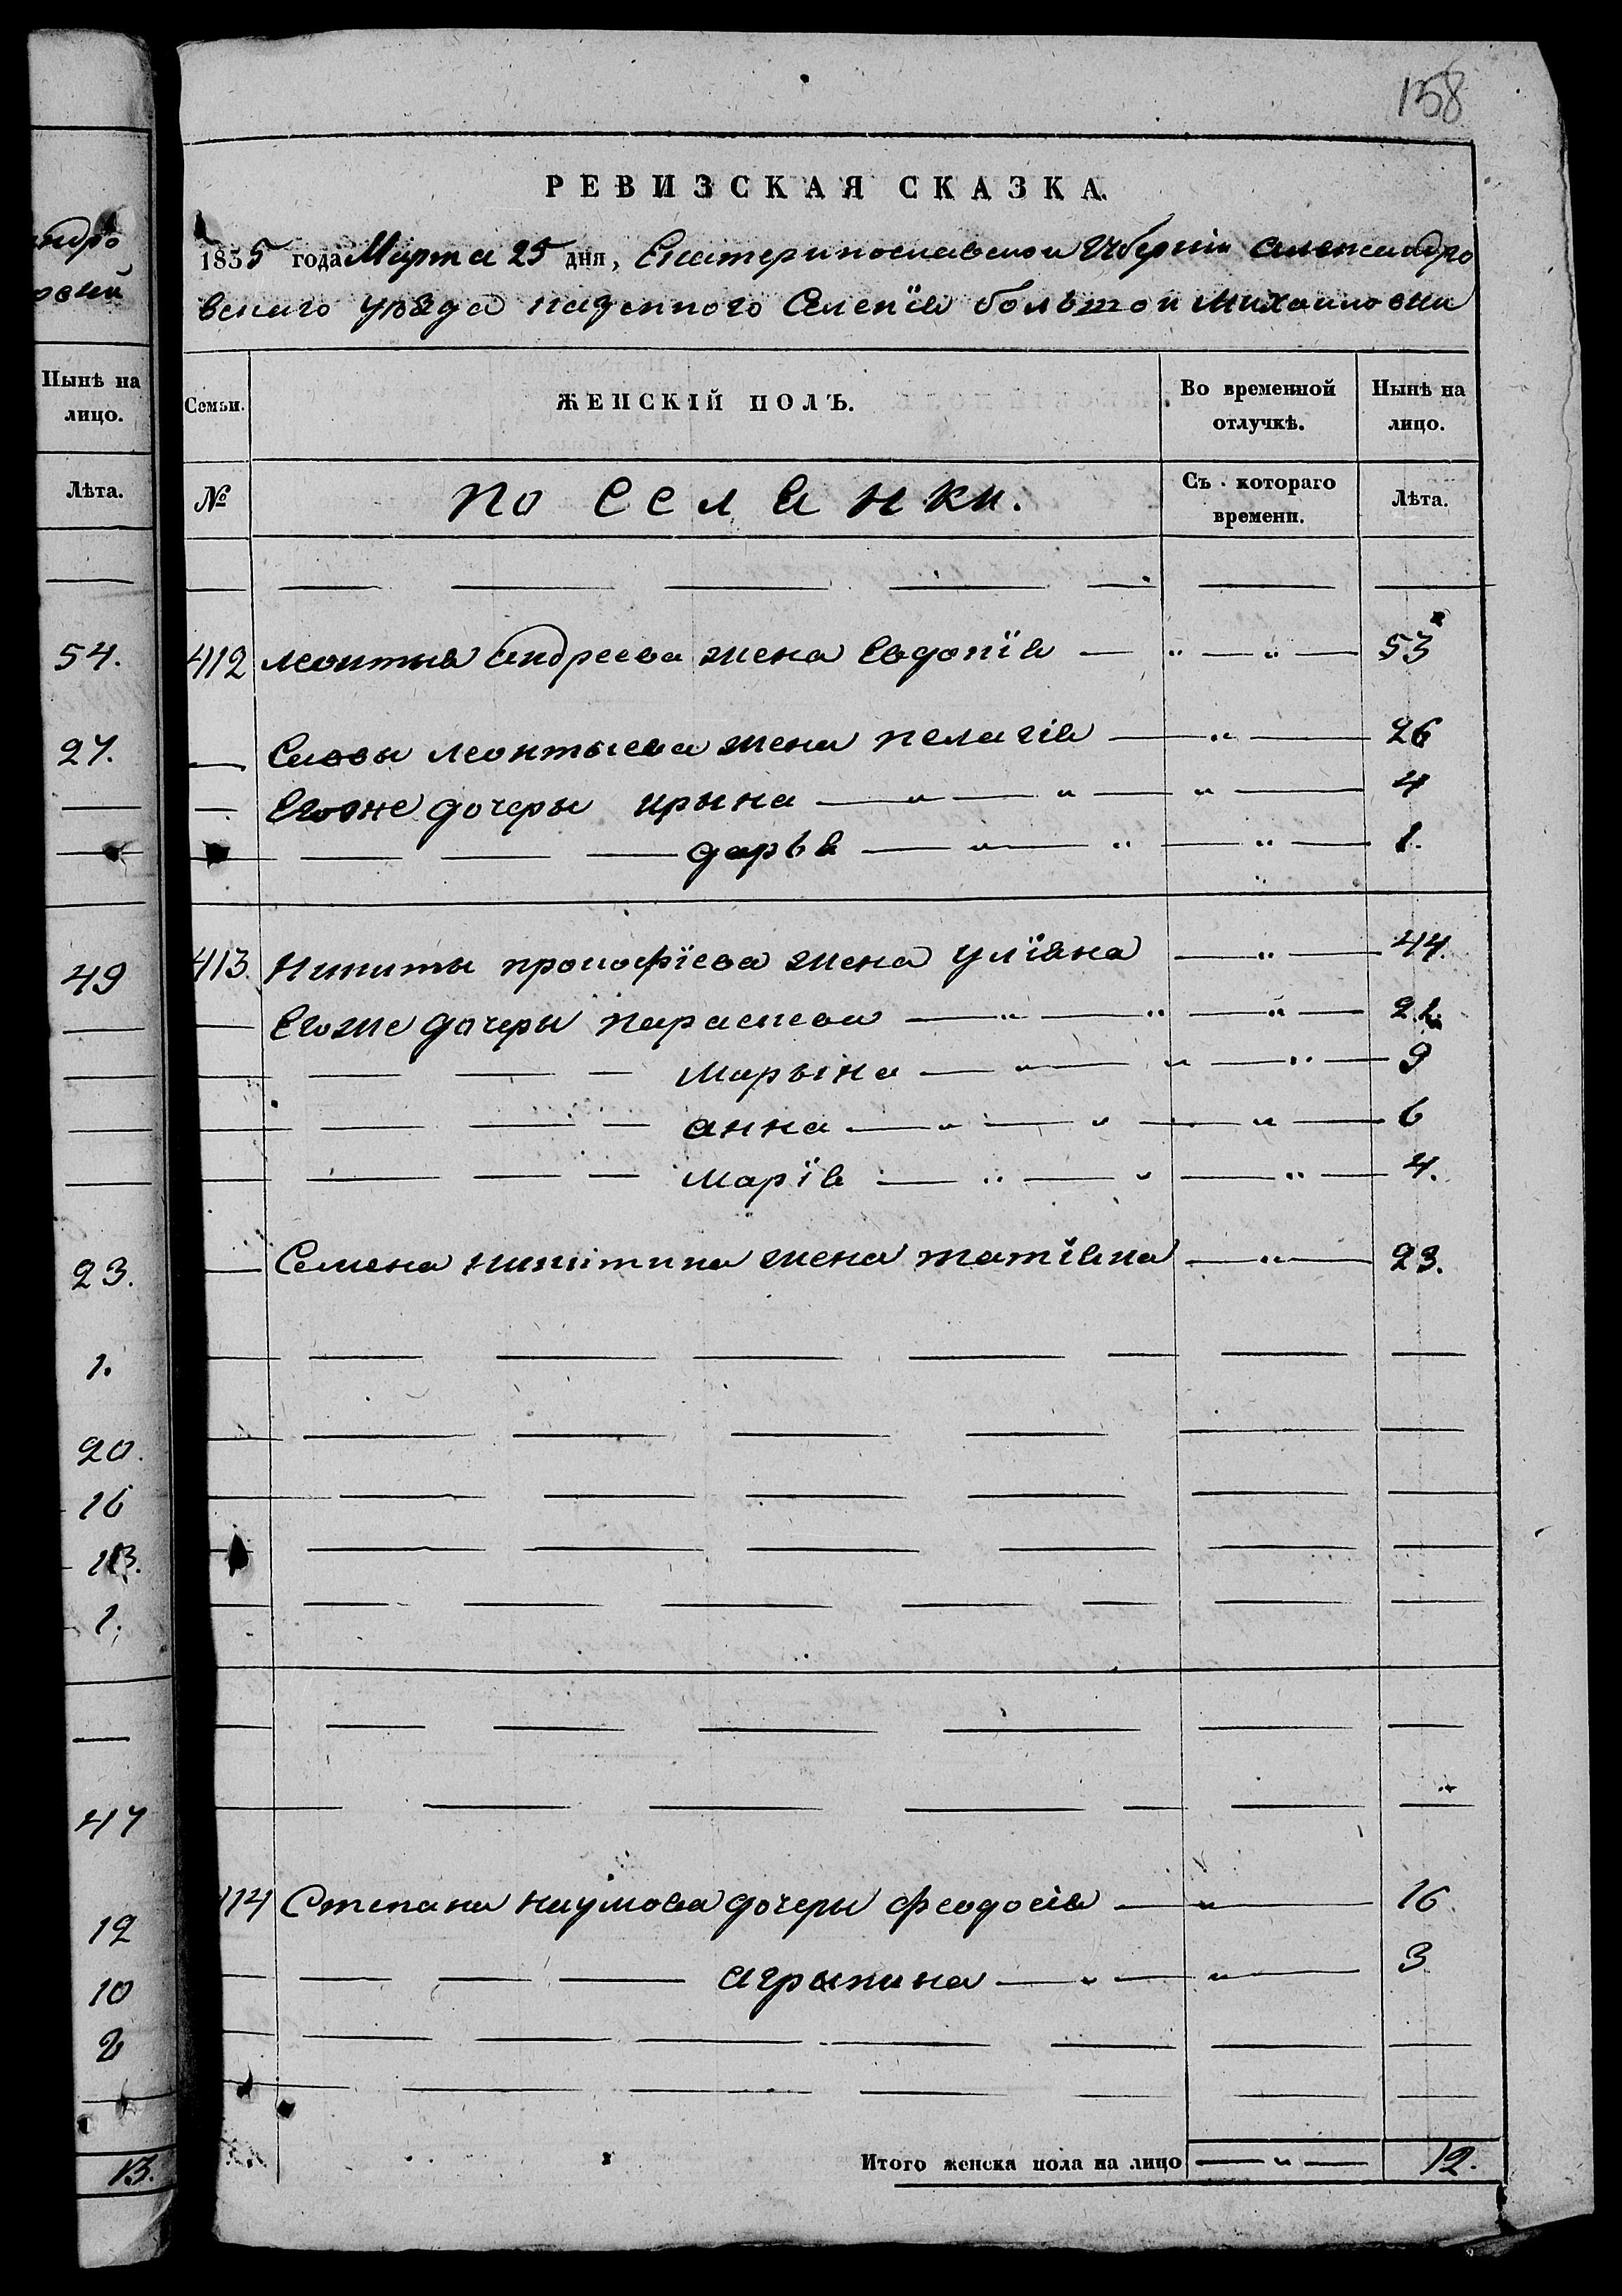 158
РЕВИЗСКАЯ СКАЗКА.
1835 года Марта 25 дня, Екатеринославской Губернии Александро
вского уѣзда казенного Селенїя большой Михайловки
Нынѣ на лицо.
Лѣта.
54.
27.
49
23.
1.
20.
16
13.
1.
47
12
10
2
13.
Семьи.
ЖЕНСКІЙ ПОЛЪ.
Во временной отлучкѣ.
Нынѣ на лицо.
№
Поселянки.
Съ котораго времени.
Лѣта.
412 Леонтия андреева жена Евдокїя 53
Савы леонтьева жена пелагія 26
Его же дочеры ирына 4
дарья 1.
413. Никиты прокофїева жена улїяна 44.
Егоже дочеры параскева 22.
Марьіна 9
анна 6
Марїя 4.
Семена никитина жена татїяна 23.
414 Степана наумова дочеры феодосія 16.
агрыпина 3
Итого женска пола на лицо 12.